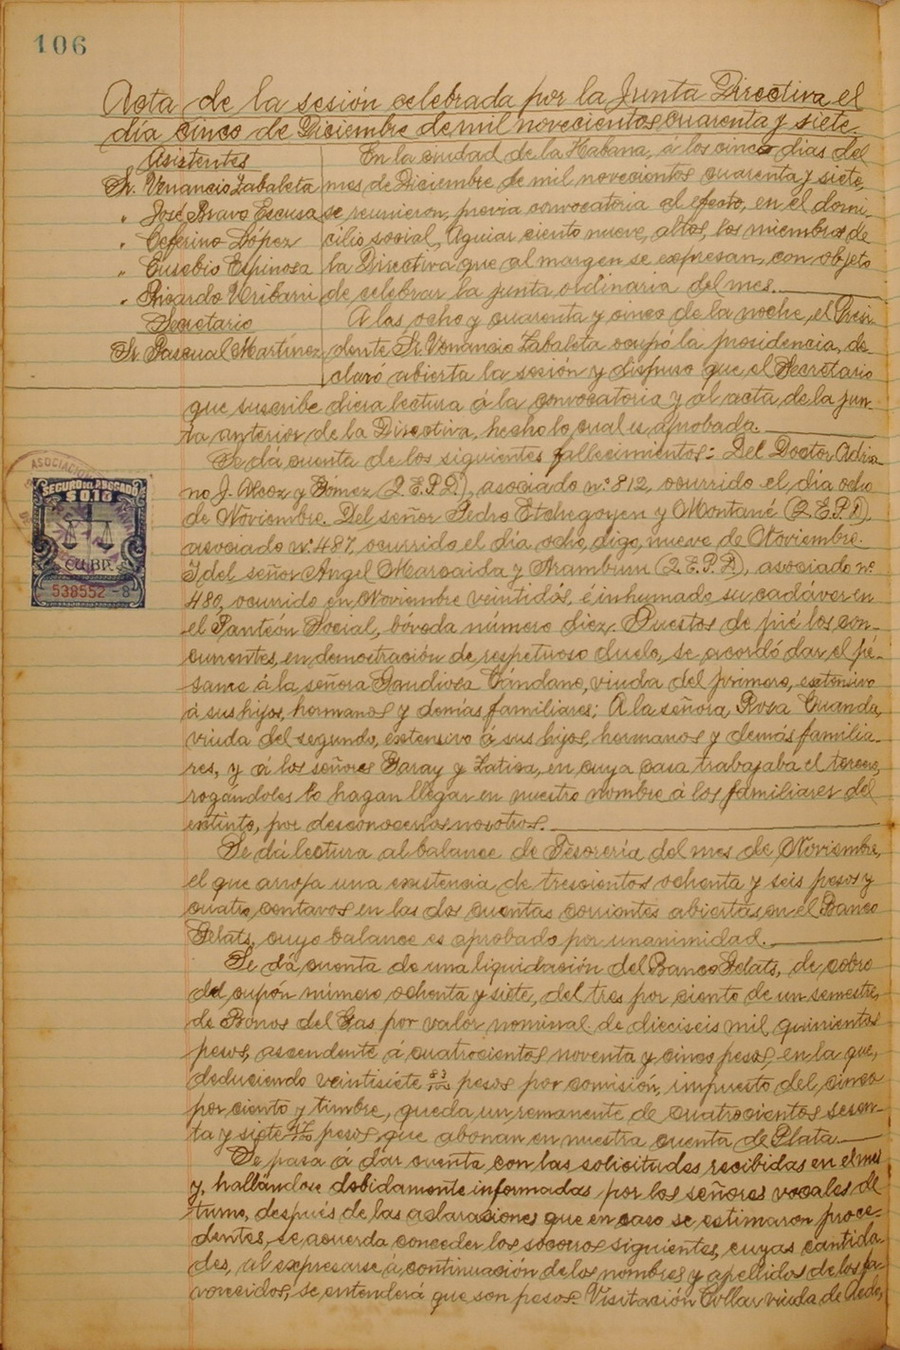 106
Acta de la sesión celebrada por la Junta Directiva el
día cinco de Diciembre de mil novecientos cuarenta y siete.
Asistentes
Sr. Venancio Zabaleta
" José Bravo Escusa
" Ceferino López
" Eusebio Espinosa
" Ricardo Uribarri
Secretario
Sr. Pascual Martínez
En la ciudad de la Habana, a los cinco dias del
mes de Diciembre de mil novecientos cuarenta y siete,
se reunieron, previa convocatoria al efecto, en el domi-
cilio social, Aguiar ciento nueve, altos, los miembros de
la Directiva que al margen se expresan, con objeto
de celebrar la junta ordinaria del mes.
A las ocho y cuarenta y cinco de la noche, el Presi-
dente Sr. Venancio Zabaleta ocupó la presidencia, de-
claró abierta la sesión y dispuso que el Secretario
que suscribe diera lectura á la convocatoria y al acta de la jun-
ta anterior de la Directiva, hecho lo cual es aprobada.
Se dá cuenta de los siguientes fallecimientos: Del Doctor Adria-
no J. y Gómez (Q.E.P.D.), asociado nº 812, ocurrido el día ocho
de Noviembre. Del señor Pedro Etchegoyen y Montané (Q.E.P.D),
asociado nº 487, ocurrido el día ocho, digo, nueve de Noviembre.
Y del señor Angel Marcaida y Aramburu (Q.E.P.D), asociado nº
480, ocurrido en Noviembre veintidós, é inhumado su cadáver en
el Panteón Social, bóveda número diez. Puestos de pié los con-
currentes, en demostración de respetuoso duelo, se acordó dar el pé-
same á la señora Gaudiosa Cándano, viuda del primero, extensivo
á sus hijos, hermanos y demás familiares; A la señora Rosa
viuda del segundo, extensivo á sus hijos, hermanos y demás familia-
res, y á los señores Garay y Latiza, en cuya casa trabajaba el tercero,
rogándoles lo hagan llegar en nuestro nombre á los familiares del
extinto, por desconocerlos nosotros.
Se dá lectura al balance de Tesorería del mes de Noviembre,
el que arroja una existencia de trescientos ochenta y seis pesos y
cuatro centavos en las dos cuentas corrientes abiertas en el Banco
Gelats, cuyo balance es aprobado por unanimidad.
Se dá cuenta de una liquidación del Banco Gelats, de cobro
del cupón número ochenta y siete, del tres por ciento de un semestre,
de Bonos del Gas por valor nominal de dieciseis mil quinientos
pesos, ascendente á cuatrocientos noventa y cinco pesos, en la que,
deduciendo veintisiete 83/100 pesos por comisión, impuesto del cinco
por ciento y timbre, queda un remanente de cuatrocientos sesen-
ta y siete 17/100 pesos, que abonan en nuestra cuenta de Plata.
Se pasa á dar cuenta con las solicitudes recibidas en el mes
y, hallándose debidamente informadas por los señores vocales de
turno, después de las aclaraciones que en caso se estimaron proce-
dentes, se acuerda conceder los socorros siguientes, cuyas cantida-
des, al expresarse á continuación de los nombres y apellidos de los fa-
vorecidos, se entenderá que son pesos. Visitación Collar viuda de Aedo,
ASOCIACION
SEGURO DEL ABOGADO
$ 0.10
CUBA
538552 - 8